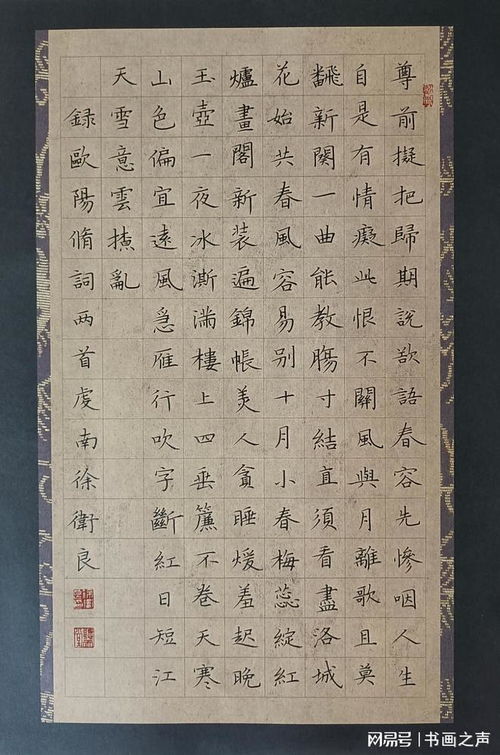 尊前擬把歸期說欲語春容先慘咽人生
自是有情癡此恨不關風與月離歌且莫
飜新闋一曲能教腸寸結直須看盡洛城
花始共春風容易别十月小春梅蕊綻紅
爐畫閣新装遍錦帳美人貪睡煖羞起晚
玉壺一夜冰澌滿樓上四垂簾不卷天寒
山色偏宜遠風急雁行吹字斷紅日短江
天雪意雲撩亂
録歐陽脩詞两首虔南徐衛良
网易号 | 书画之声